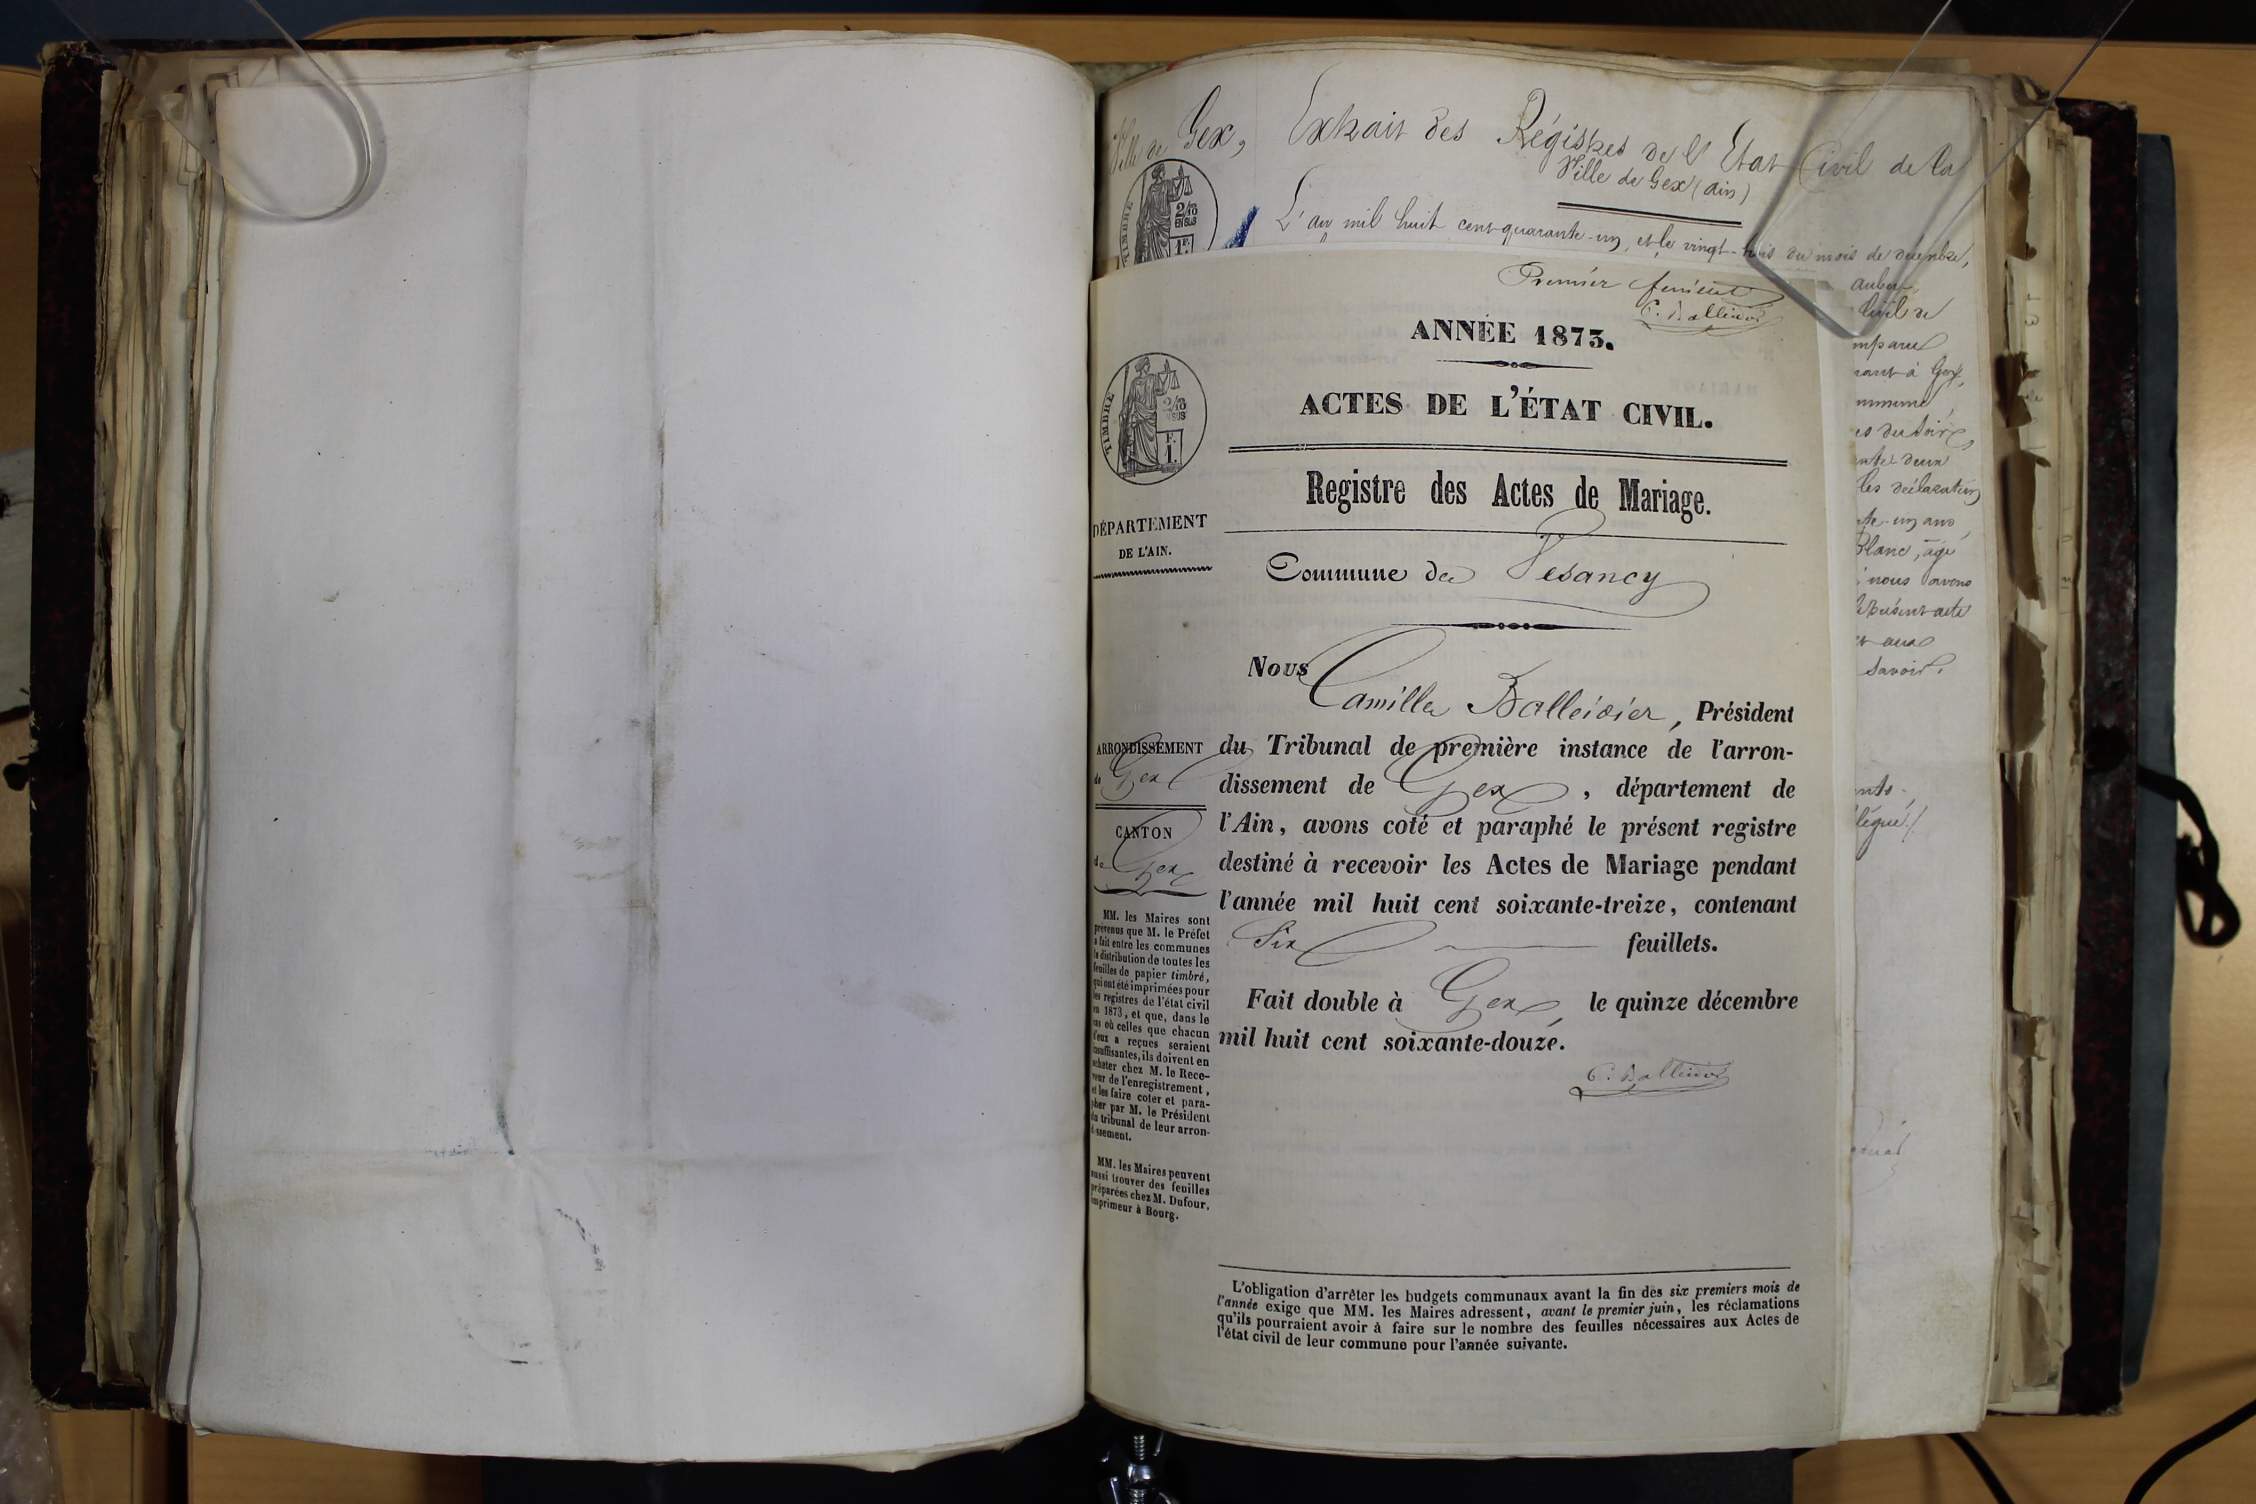 Ville de Gex, Extrait des Régistres de l'Etat Civil de la
Ville de Gex (ain)
L'an mil huit cent quarante-un, et le vingt-trois du mois de décembre,
TIMBRE
2/10
EN SUS
1F.
Civil de
comparu
à Gex,
commune,
du soir,
deux
les déclaration
un ans,
Blanc, âgé
nous avons
présent acte
savoir.
Premier feuillet
C. Balleidier
ANNÉE 1873.
ACTES DE L'ÉTAT CIVIL.
TIMBRE
2/10
EN SUS
F.
1.
Registre des Actes de Mariage.
DÉPARTEMENT
DE L'AIN.
Commune de Vesancy
Nous Camille Balleidier, Président
du Tribunal de première instance de l'arron-
dissement de Gex, département de
l'Ain, avons coté et paraphé le présent registre
destiné à recevoir les Actes de Mariage pendant
l'année mil huit cent soixante-treize, contenant
Six feuillets.
Fait double à Gex, le quinze décembre
mil huit cent soixante-douze.
C. Balleidier
ARRONDISSEMENT
de Gex
CANTON
de Gex
MM. les Maires sont
prévenus que M. le Préfet
a fait entre les communes
la distribution de toutes les
feuilles de papier timbré,
qui ont été imprimées pour
les registres de l'état civil
en 1873, et que, dans le
cas où celles que chacun
d'eux a reçues seraient
insuffisantes, ils doivent en
acheter chez M. le Rece-
veur de l'enregistrement,
et les faire coter et para-
pher par M. le Président
du tribunal de leur arron-
dissement.
MM. les Maires peuvent
aussi trouver des feuilles
préparées chez M. Dufour,
imprimeur à Bourg.
L'obligation d'arrêter les budgets communaux avant la fin des six premiers mois de
l'année exige que MM. les Maires adressent, avant le premier juin, les réclamations
qu'ils pourraient avoir à faire sur le nombre des feuilles nécessaires aux Actes de
l'état civil de leur commune pour l'année suivante.